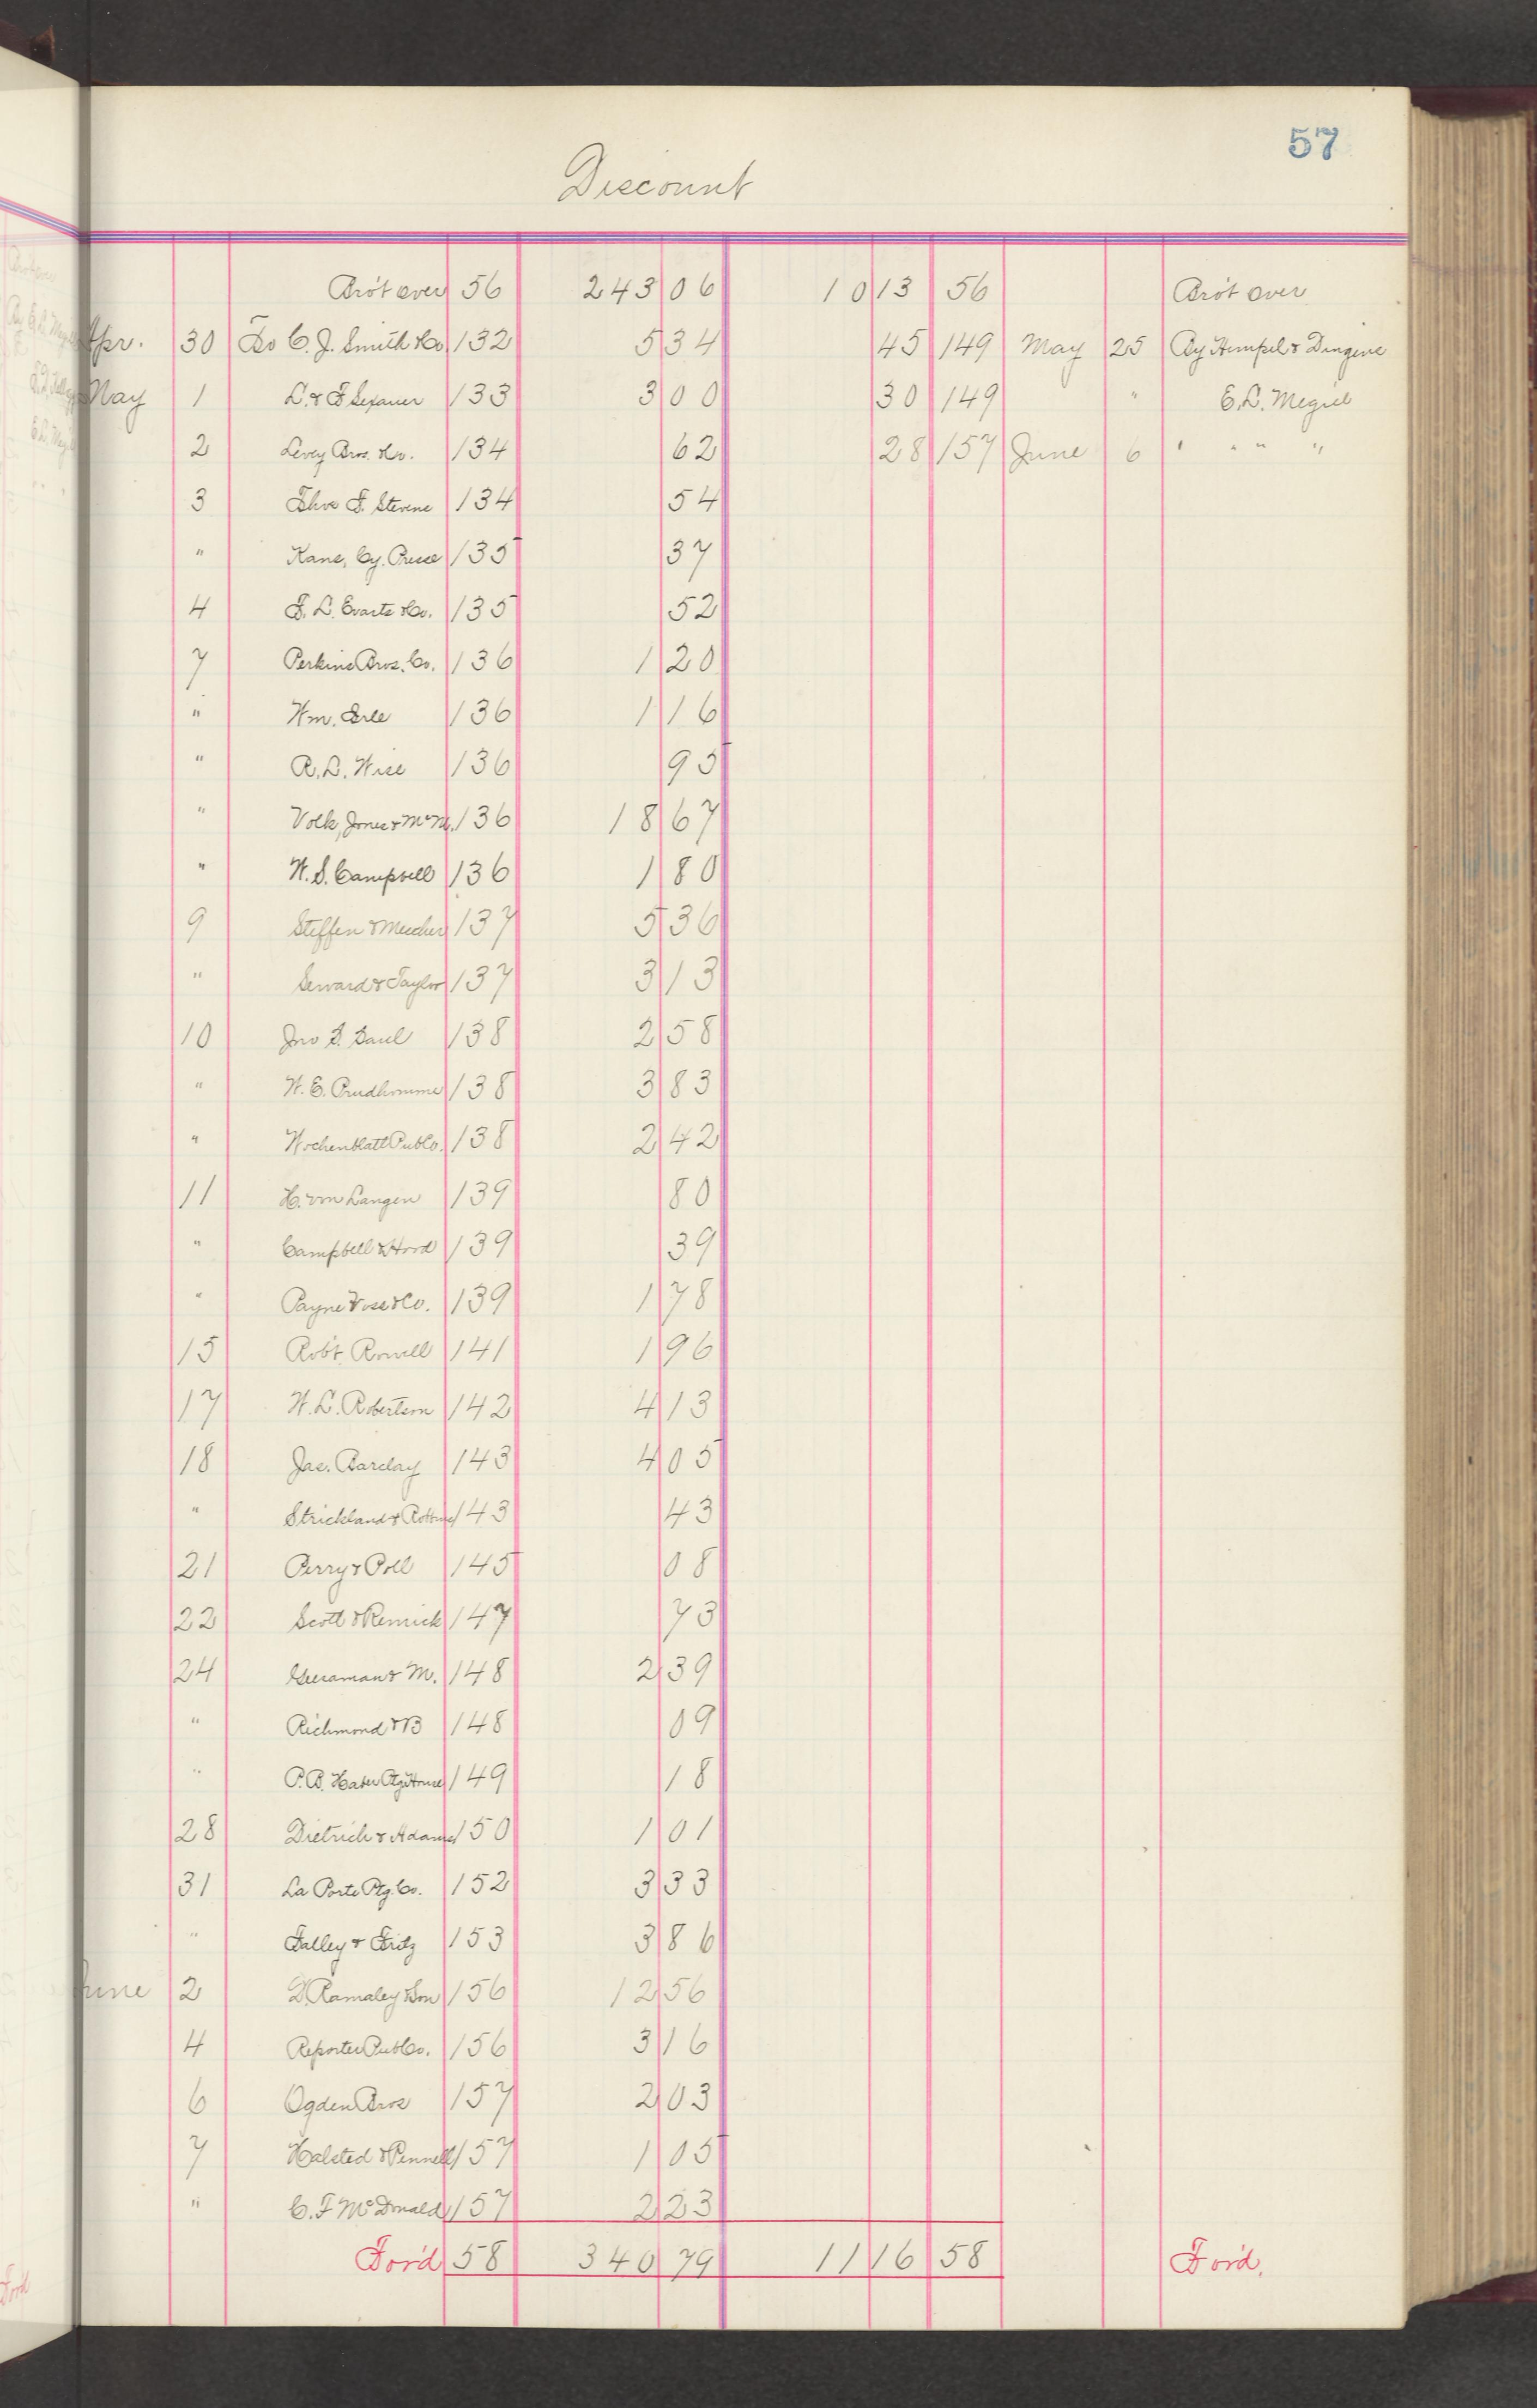 57
Discount
Bro't over 56 243 06 10 13 56 Bro't over
Apr. 30 To C. J. Smith & Co 132 5 34 45 149 May 25 By Hempel & Dingens
May 1 L. & F. Sexauer 133 3 00 30 149 " E. L. Megill
2 Levey Bros. & Co. 134 62 28 157 June 6 " " " "
3 Thos F. Stevens 134 54
" Kane, Cy. Press 135 37
4 F. L. Evarts & Co. 135 52
7 Perkins Bros. Co. 136 1 20
" Wm. Erle 136 1 16
" R. L. Wise 136 95
" Volk, Jones & McM. 136 18 67
" W. S. Campbell 136 1 80
9 Steffen & 137 5 36
" Seward & Taylor 137 3 13
10 Jno S. Saul 138 2 58
" W. E. Prudhomme 138 3 83
" Wochenblatt Pub Co. 138 2 42
11 H. von Langen 139 80
" Campbell & Hood 139 39
" Payne Vose & Co. 139 1 78
15 Rob't Rowell 141 1 96
17 W. L. Robertson 142 4 13
18 Jas. Barclay 143 4 05
" Strickland & 143 43
21 Perry & Poll 145 08
22 Scott & Remick 147 73
24 & M. 148 2 39
" Richmond & B 148 09
" P. B. Ptg House 149 18
28 Dietrich & Adams 150 1 01
31 La Porte Ptg. Co. 152 3 33
" Talley & Fritz 153 3 86
June 2 D. Ramaley & Son 156 12 56
4 Reporter Pub Co. 156 3 16
6 Ogden Bros 157 2 03
7 Halsted & Pennell 157 1 05
" C. F McDonald 157 2 23
For'd 58 340 79 11 16 58 For'd.